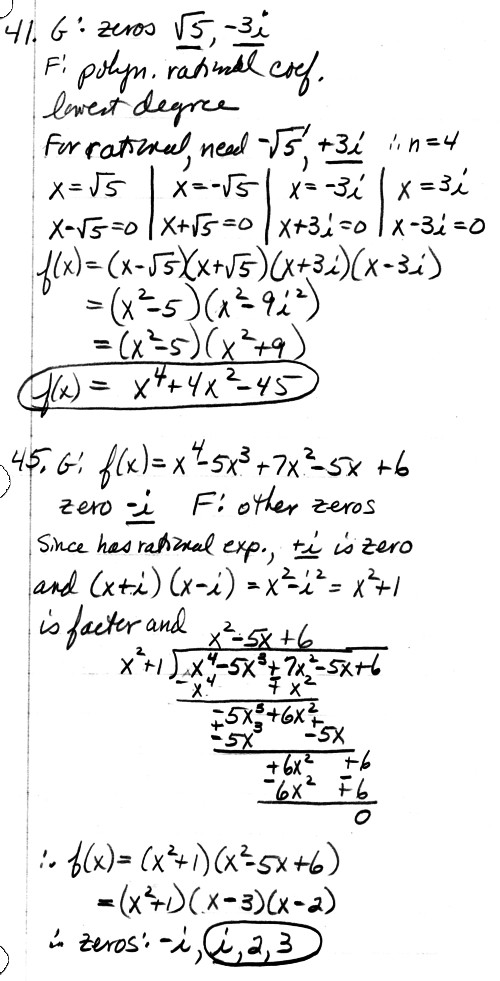 41. G: zeros √5, -3i
F: polyn. rational coef.
lowest degree
For rational, need -√5, +3i ∴ n=4
x=√5 | x=-√5 | x=-3i | x=3i
x-√5=0 | x+√5=0 | x+3i=0 | x-3i=0
f(x)=(x-√5)(x+√5)(x+3i)(x-3i)
=(x²-5)(x²-9i²)
=(x²-5)(x²+9)
f(x) = x⁴+4x²-45
45. G: f(x)=x⁴-5x³+7x²-5x+6
zero -i F: other zeros
Since has rational exp., +i is zero
and (x+i)(x-i) = x²-i² = x²+1
is factor and x²-5x+6
x²+1)x⁴-5x³+7x²-5x+6
-x⁴ ∓ x²
-5x³+6x²
-5x³ -5x
+6x² +6
-6x² ∓6
0
∴ f(x)= (x²+1)(x²-5x+6)
=(x²+1)(x-3)(x-2)
∴ zeros: -i, i, 2, 3